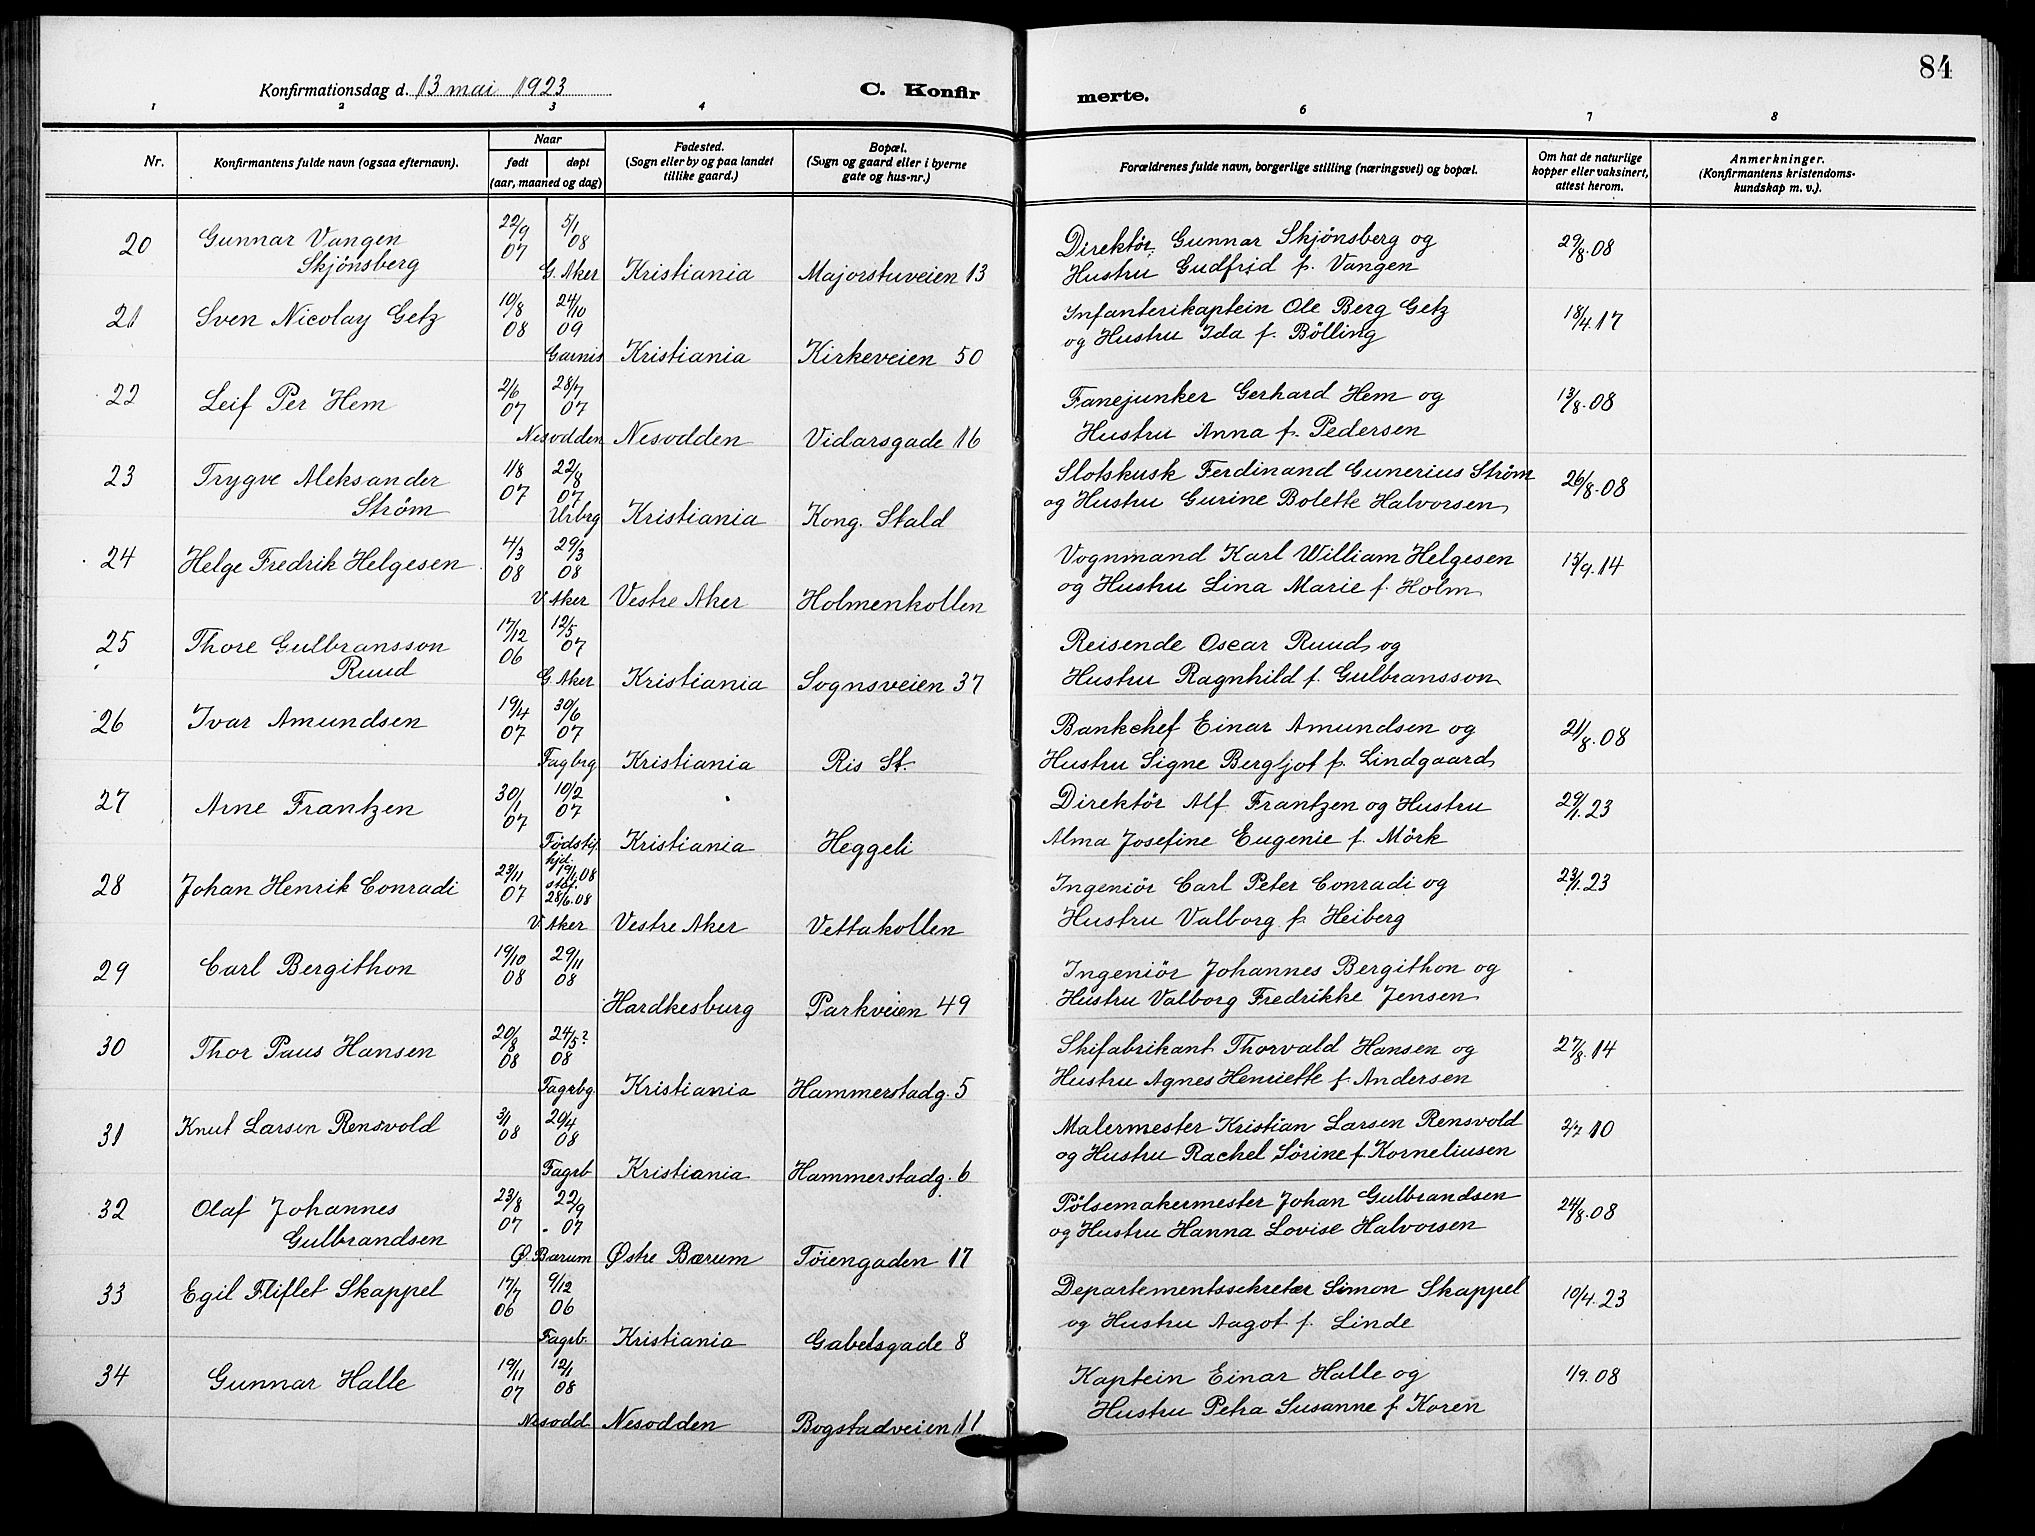 84
Konfirmationsdag d. 13 mai 1923 C. Konfir merte.
1 2 3 4 5 6 7 8
Nr.
Konfirmantens fulde navn (ogsaa efternavn).
Naar
født døpt
(aar, maaned og dag)
Fødested.
(Sogn eller by og paa landet
tillike gaard.)
Bopæl.
(Sogn og gaard eller i byerne
gate og hus-nr.)
Forældrenes fulde navn, borgerlige stilling (næringsvei) og bopæl.
Om hat de naturlige
kopper eller vaksinert,
attest herom.
Anmerkninger.
(Konfirmantens kristendoms-
kundskap m. v.).
20 Gunnar Vangen 22/9 07 5/1 08 Direktör Gunnar Skjönsberg og 29/8.08
Skjönsberg G. Aker Kristiania Majorstuveien 13 Hustru Gudfrid f. Vangen
21 Sven Nicolay Getz 10/8 08 24/10 09 Infanterikaptein Ole Berg Getz 18/4.17
Garnis Kristiania Kirkeveien 50 og Hustru Ida f. Bölling
22 Leif Per Hem 2/6 07 28/7 07 Fanejunker Gerhard Hem og 13/8.08
Nesodden Nesodden Vidarsgade 16 Hustru Anna f. Pedersen
23 Trygve Aleksander 1/8 07 22/8 07 Slotskusk Ferdinand Gunerius Ström 26/8.08
Ström Urbrg Kristiania Kong. Stald og Hustru Gurine Bolette Halvorsen
24 Helge Fredrik Helgesen 4/3 08 29/3 08 Vognmand Karl William Helgesen 15/9.14
V. Aker Vestre Aker Holmenkollen og Hustru Lina Marie f. Holm
25 Thore Gulbransson 17/12 06 12/5 07 Reisende Oscar Ruud og
Ruud G. Aker Kristiania Sognsveien 37 Hustru Ragnhild f. Gulbransson
26 Ivar Amundsen 19/4 07 30/6 07 Bankchef Einar Amundsen og 21/8.08
Fagbrg Kristiania Ris St. Hustru Signe Bergljot f. Lindgaard
27 Arne Frantzen 30/1 07 10/2 07 Direktör Alf Frantzen og Hustru 29/1.23
Födstif. Kristiania Heggeli Alma Josefine Eugenie f. Mörk
28 Johan Henrik Conradi 23/11 07 hjd. 19/1.08 stdf. 28/6.08 Ingeniör Carl Peter Conradi og 23/1.23
V. Aker Vestre Aker Vettakollen Hustru Valborg f. Heiberg
29 Carl Bergithon 19/10 08 29/11 08 Ingeniör Johannes Bergithon og
Hardkesburg Parkveien 49 Hustru Valborg Fredrikke Jensen
30 Thor Paus Hansen 20/8 08 24/5? 08 Skifabrikant Thorvald Hansen og 27/8.14
Fagrbg. Kristiania Hammerstadg. 5 Hustru Agnes Henriette f. Andersen
31 Knut Larsen Rensvold 3/1 08 20/4 08 Malermester Kristian Larsen Rensvold 2/7 10
Fagrb Kristiania Hammerstadg. 6 og Hustru Rachel Sörine f. Korneliusen
32 Olaf Johannes 23/8 07 22/9 07 Pölsemakermester Johan Gulbrandsen 24/8.08
Gulbrandsen Ø. Bærum Østre Bærum Töiengaden 17 og Hustru Hanna Lovise Halvorsen
33 Egil Fliflet Skappel 17/7 06 9/12 06 Departementssekretær Simon Skappel 10/4.23
Fagrb. Kristiania Gabelsgade 8 og Hustru Aagot f. Linde
34 Gunnar Halle 19/11 07 12/1 08 Kaptein Einar Halle og 1/9.08
Nesodd. Nesodden Bogstadveien 11 Hustru Petra Susanne f. Koren